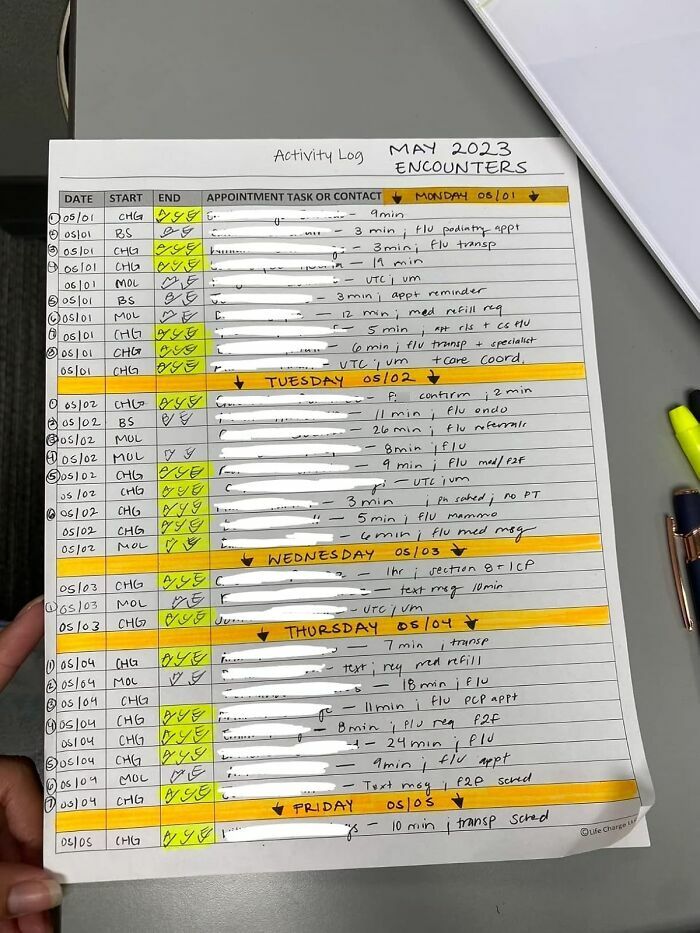 Activity Log MAY 2023
ENCOUNTERS
DATE START END APPOINTMENT TASK OR CONTACT ↓ MONDAY 05/01 ↓
① 05/01 CHG — 9min
② 05/01 BS — 3 min ; flu podiatry appt
③ 05/01 CHG — 3min ; flu transp
④ 05/01 CHG — 19 min
05/01 MOL — UTC ; vm
⑤ 05/01 BS — 3min ; appt reminder
⑥ 05/01 MOL — 12 min ; med refill req
⑦ 05/01 CHG — 5 min ; + cs flu
⑧ 05/01 CHG — 6 min ; flu transp + specialist
05/01 CHG — UTC ; vm + care coord.
↓ TUESDAY 05/02 ↓
① 05/02 CHG — confirm ; 2 min
② 05/02 BS — 11 min ; flu endo
③ 05/02 MOL — 26 min ; flu referrals
④ 05/02 MOL — 8min ; flu
⑤ 05/02 CHG — 9 min ; flu med/F2F
05/02 CHG — UTC ; vm
⑥ 05/02 CHG — 3 min ; sched ; no PT
05/02 CHG — 5 min ; flu mammo
05/02 MOL — 6 min ; flu med msg
↓ WEDNESDAY 05/03 ↓
05/03 CHG — 1hr ; section 8 + ICP
① 05/03 MOL — text msg 10min
05/03 CHG — UTC ; vm
↓ THURSDAY 05/04 ↓
① 05/04 CHG — 7 min ; transp
② 05/04 MOL — text ; req med refill
③ 05/04 CHG — 18 min ; flu
④ 05/04 CHG — 11min ; flu PCP appt
05/04 CHG — 8min ; flu req F2F
⑤ 05/04 CHG — 24 min ; flu
⑥ 05/04 MOL — 9min ; flu appt
⑦ 05/04 CHG — Text msg ; F2F sched
↓ FRIDAY 05/05 ↓
05/05 CHG — 10 min ; transp sched
© Life Charge